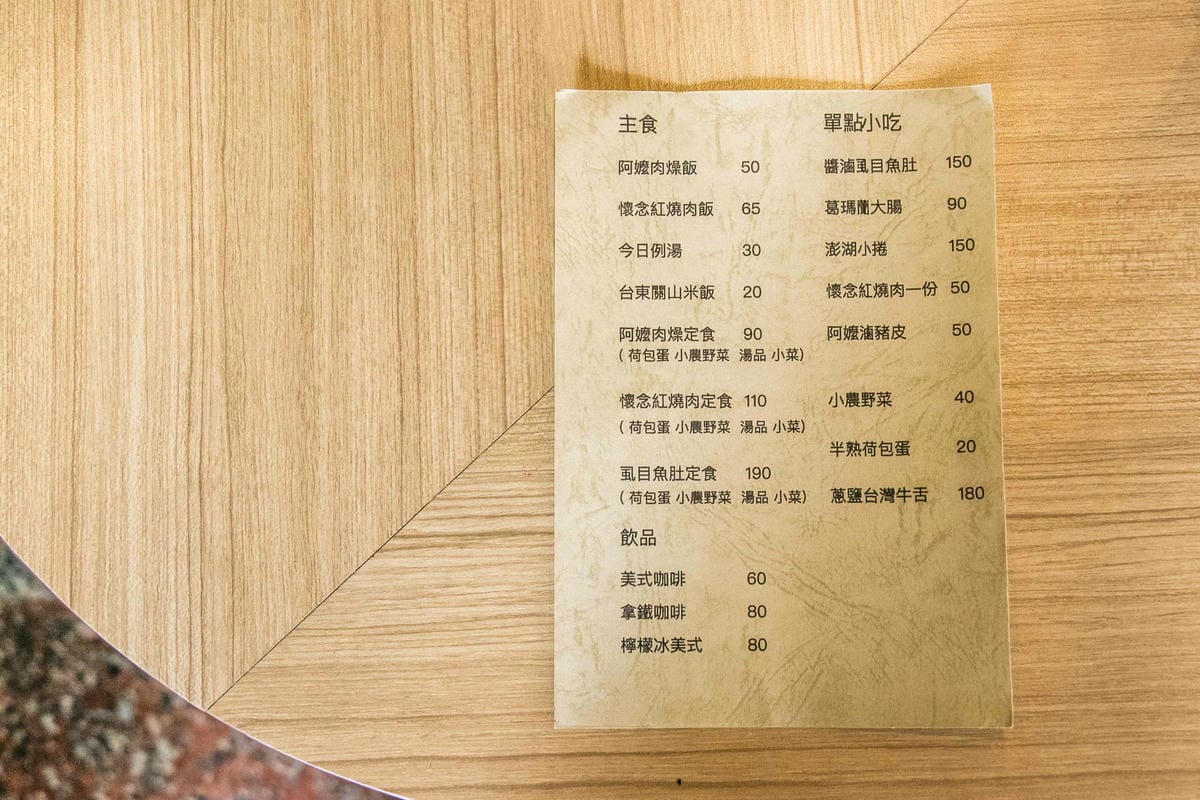 主食
阿嬤肉燥飯 50
懷念紅燒肉飯 65
今日例湯 30
台東關山米飯 20
阿嬤肉燥定食 90
( 荷包蛋 小農野菜 湯品 小菜)
懷念紅燒肉定食 110
( 荷包蛋 小農野菜 湯品 小菜)
虱目魚肚定食 190
( 荷包蛋 小農野菜 湯品 小菜)
飲品
美式咖啡 60
拿鐵咖啡 80
檸檬冰美式 80
單點小吃
醬滷虱目魚肚 150
葛瑪蘭大腸 90
澎湖小捲 150
懷念紅燒肉一份 50
阿嬤滷豬皮 50
小農野菜 40
半熟荷包蛋 20
蔥鹽台灣牛舌 180